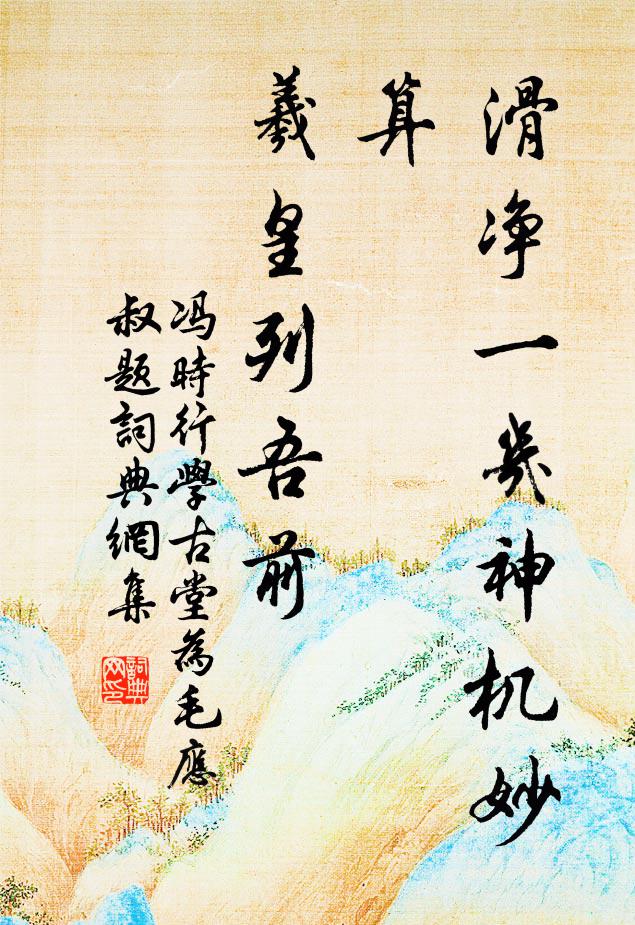 滑净一几神机妙
算
羲皇列吾前
冯時行學古堂為毛應
叔題詞典網集
詞典
网印